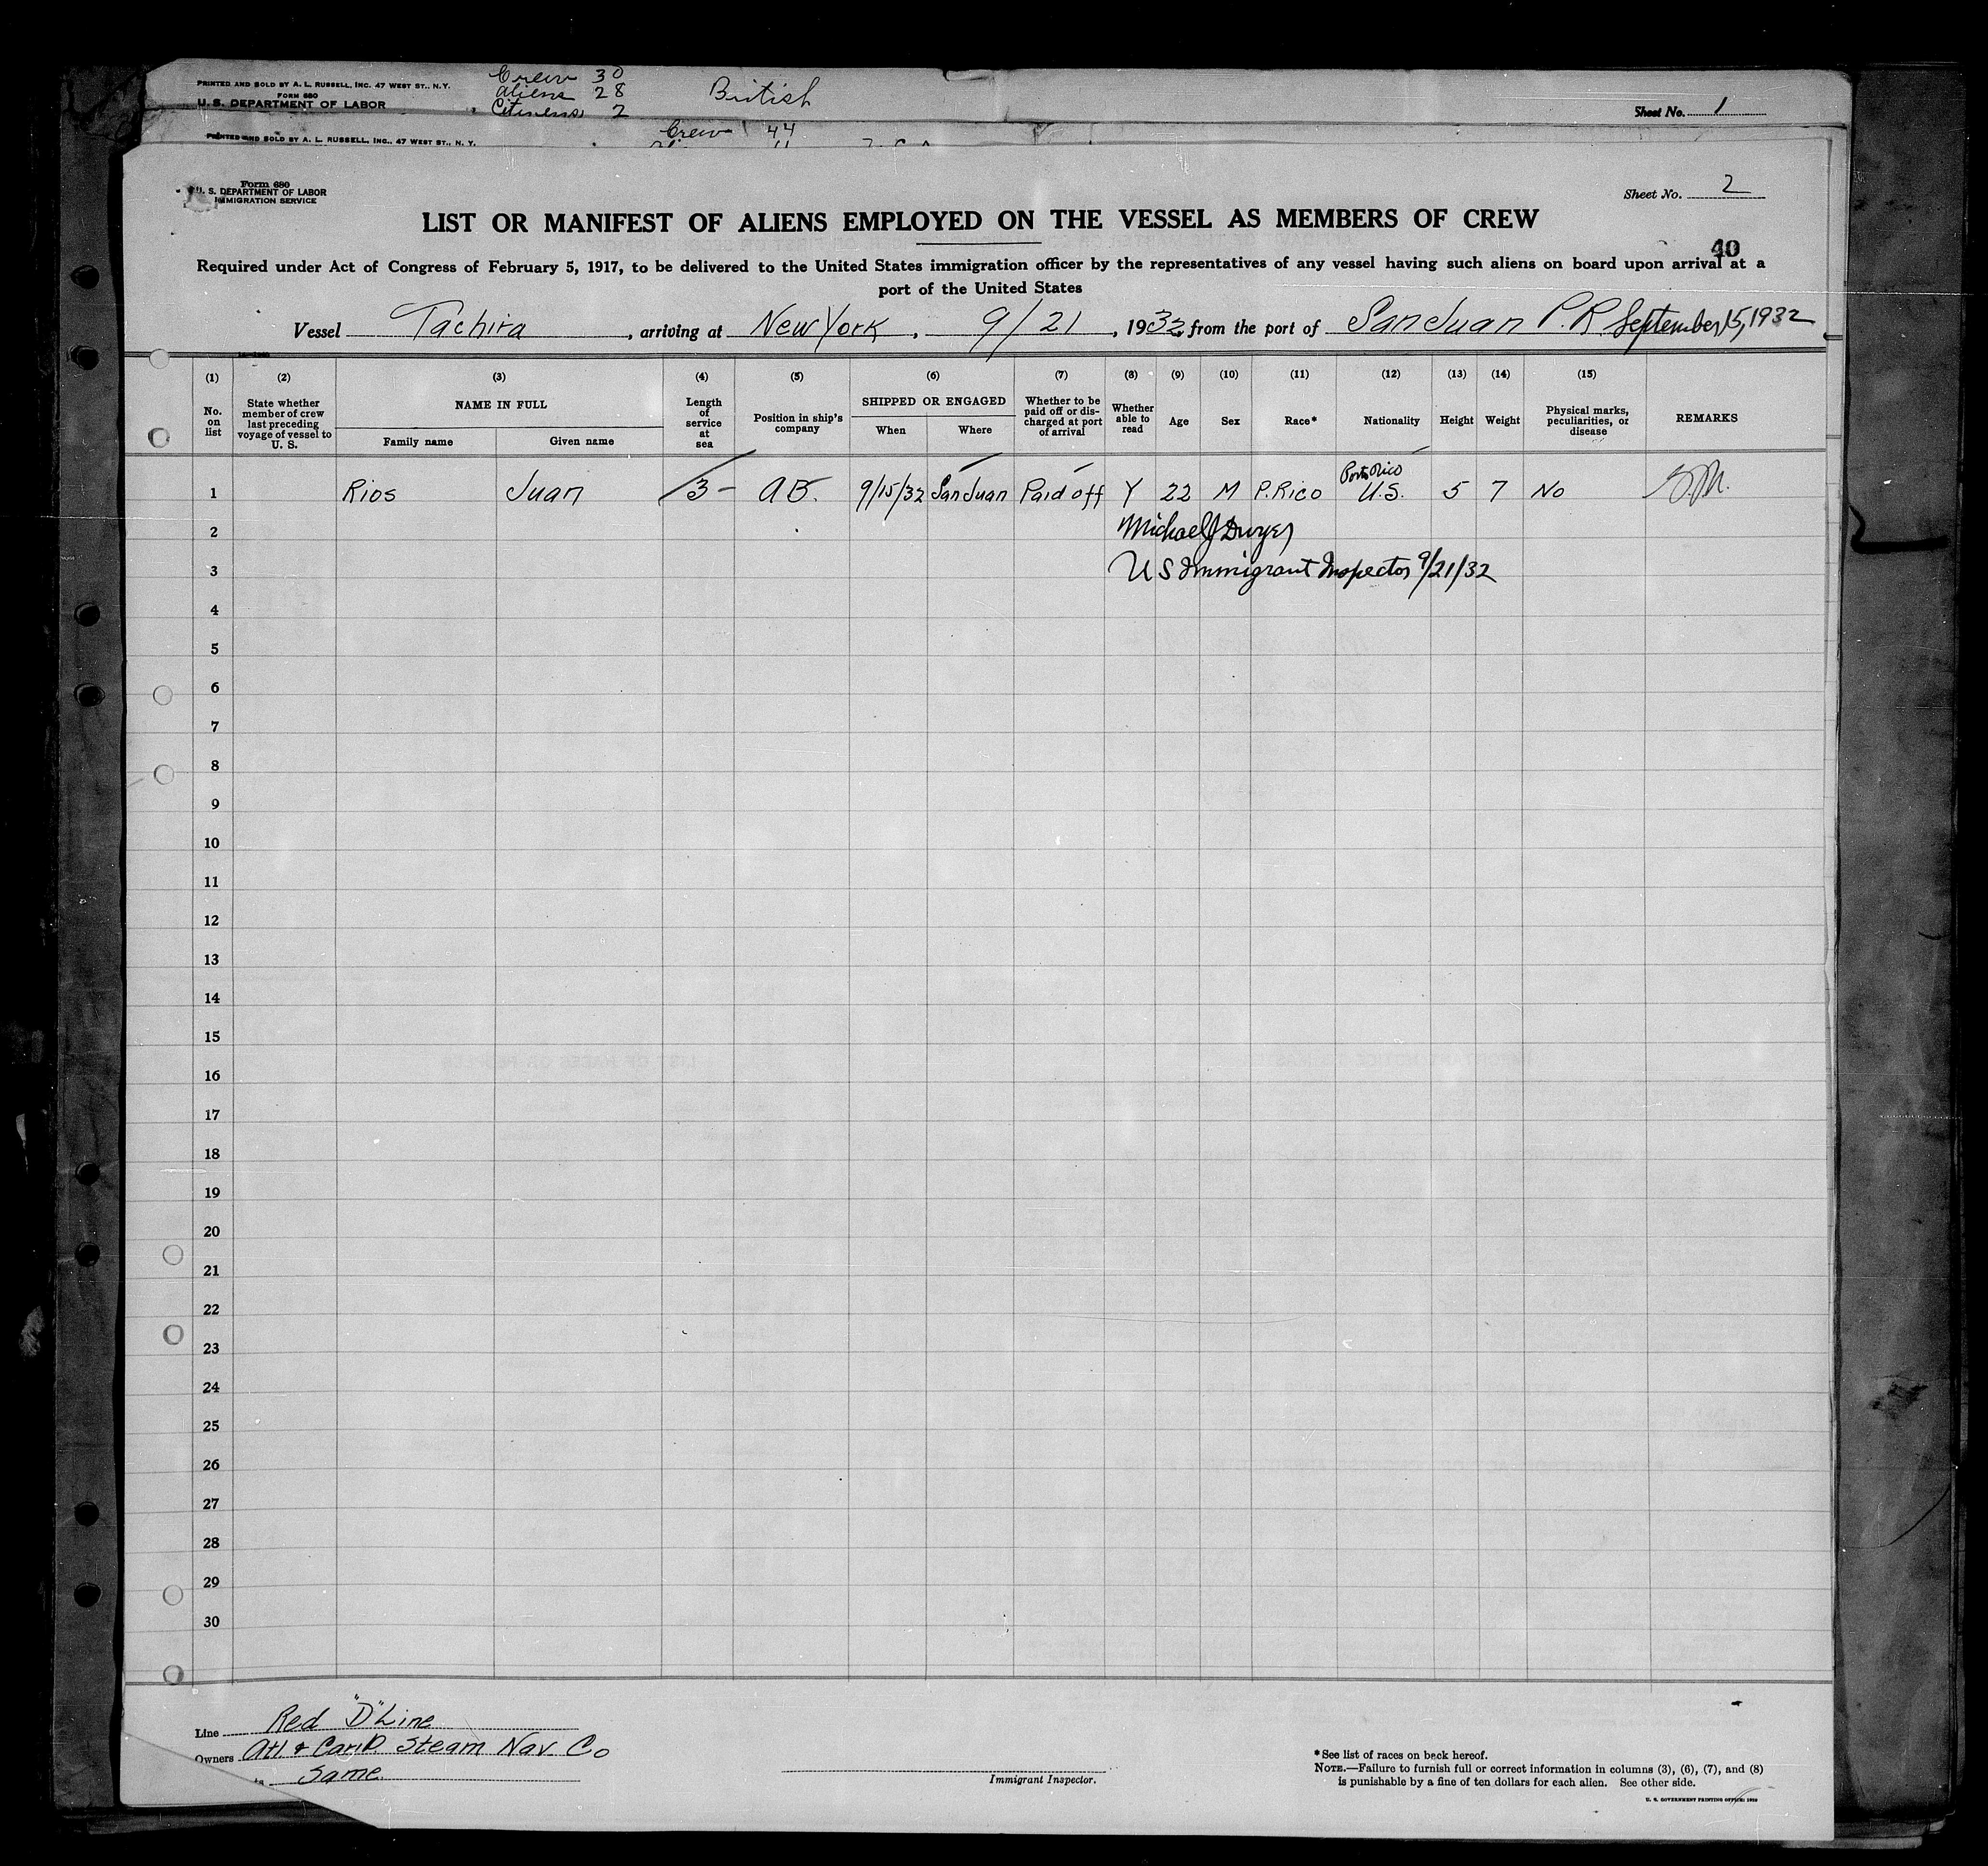 PRINTED AND SOLD BY A. L. RUSSELL, INC. 47 WEST ST., N.Y.
FORM 680
U. S. DEPARTMENT OF LABOR
Crew 30
aliens 28
Citizens 2
British
Sheet No. 1
PRINTED AND SOLD BY A. L. RUSSELL, INC., 47 WEST ST., N. Y.
Crew 44
Form 680
U. S. DEPARTMENT OF LABOR
IMMIGRATION SERVICE
Sheet No. 2
LIST OR MANIFEST OF ALIENS EMPLOYED ON THE VESSEL AS MEMBERS OF CREW
40
Required under Act of Congress of February 5, 1917, to be delivered to the United States immigration officer by the representatives of any vessel having such aliens on board upon arrival at a
port of the United States
Vessel Tachira, arriving at New York, 9/21, 1932, from the port of San Juan P.R. September 15, 1932
(1) (2) (3) (4) (5) (6) (7) (8) (9) (10) (11) (12) (13) (14) (15)
No. on list
State whether member of crew last preceding voyage of vessel to U. S.
NAME IN FULL
Family name
Given name
Length of service at sea
Position in ship's company
SHIPPED OR ENGAGED
When
Where
Whether to be paid off or discharged at port of arrival
Whether able to read
Age
Sex
Race*
Nationality
Height
Weight
Physical marks, peculiarities, or disease
REMARKS
Porto Rico
1 Rios Juan 3 - AB. 9/15/32 San Juan Paid off Y 22 M P. Rico U.S. 5 7 No
2 Michael J Dwyer
3 US Immigrant Inspector 9/21/32
4
5
6
7
8
9
10
11
12
13
14
15
16
17
18
19
20
21
22
23
24
25
26
27
28
29
30
Line Red "D" Line
Owners Atl & Carib. Steam Nav. Co
Same
Immigrant Inspector.
*See list of races on back hereof.
NOTE.—Failure to furnish full or correct information in columns (3), (6), (7), and (8)
is punishable by a fine of ten dollars for each alien. See other side.
U. S. GOVERNMENT PRINTING OFFICE: